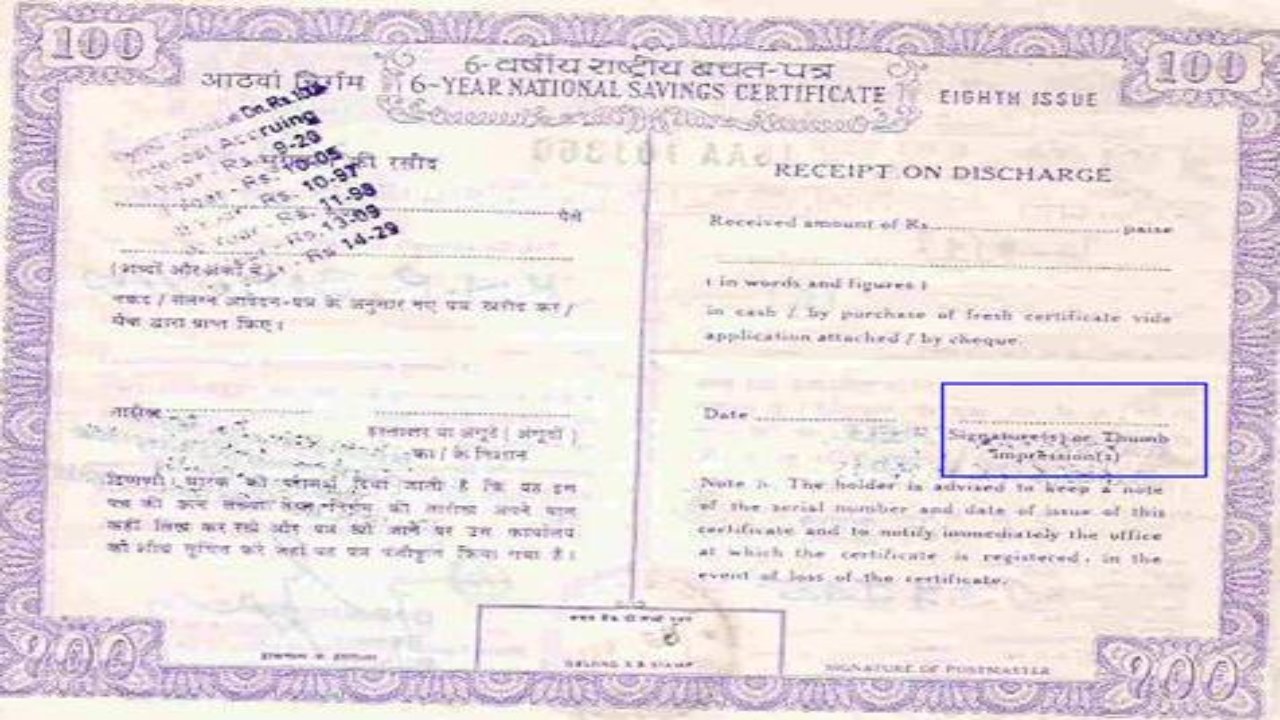 100
100
6-वर्षीय राष्ट्रीय बचत-पत्र
आठवां निर्गम
6-YEAR NATIONAL SAVINGS CERTIFICATE
EIGHTH ISSUE
On Rs.
Interest Accruing
Year - Rs. 9-20
Year - Rs. 10-05
Year - Rs. 10-97
Year - Rs. 11-98
Rs. 13-09
Rs 14-29
की रसीद
पैसे
(शब्दों और अंकों में)
नकद / संलग्न आवेदन-पत्र के अनुसार नए पत्र खरीद कर /
चैक द्वारा प्राप्त किए।
तारीख
हस्ताक्षर या अंगूठे (अंगूठों)
का / के निशान
टिप्पणी: धारक को परामर्श दिया जाता है कि वह इस
पत्र की क्रम संख्या तथा निर्गम की तारीख अपने पास
कहीं लिख कर रखे और पत्र खो जाने पर उस कार्यालय
को शीघ्र सूचित करे जहां वह पत्र पंजीकृत किया गया है।
RECEIPT ON DISCHARGE
Received amount of Rs. paise
( in words and figures )
in cash / by purchase of fresh certificate vide
application attached / by cheque.
Date
Signature(s) or Thumb
impression(s)
Note :- The holder is advised to keep a note
of the serial number and date of issue of this
certificate and to notify immediately the office
at which the certificate is registered, in the
event of loss of the certificate.
STAMP
SIGNATURE OF POSTMASTER
100
100